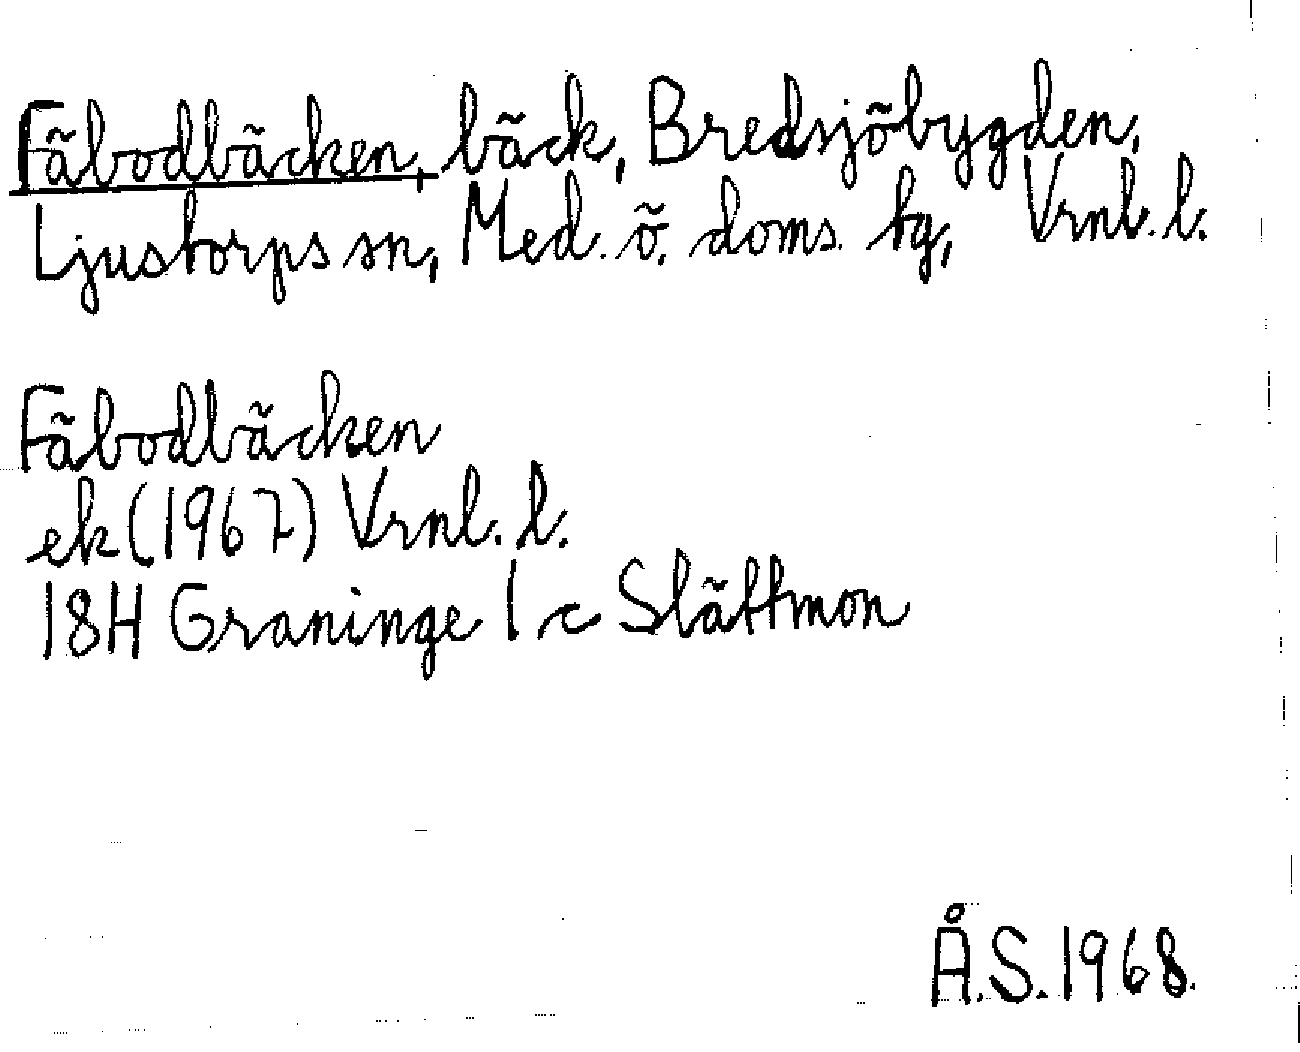 Fäbodbäcken, bäck, Bredsjöbygden,
Ljustorps sn, Med. ö. doms. tg, Vrnl. l.
Fäbodbäcken
ek (1967) Vrnl. l.
18H Graninge 1 c Slättmon
Å.S. 1968.